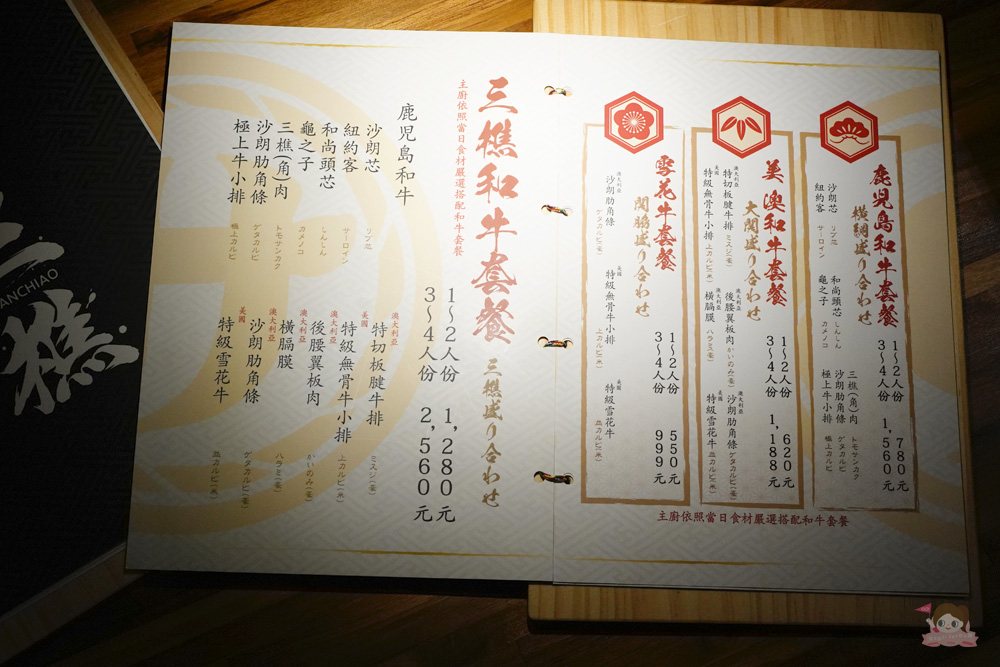 鹿児島和牛套餐
橫綱盛り合わせ
1～2人份 780元
3～4人份 1,560元
沙朗芯 リブ芯
紐約客 サーロイン
和尚頭芯 しんしん
龜之子 カメノコ
三樵(角)肉 トモサンカク
沙朗肋角條 ゲタカルビ
極上牛小排 極上カルビ
美澳和牛套餐
大関盛り合わせ
1～2人份 620元
3～4人份 1,188元
澳大利亞 特切板腱牛排 ミスジ(豪)
美國 特級無骨牛小排 上カルビ(米)
澳大利亞 後腰翼板肉 かいのみ(豪)
澳大利亞 橫膈膜 ハラミ(豪)
澳大利亞 沙朗肋角條 ゲタカルビ(豪)
美國 特級雪花牛 皿カルビ(米)
雪花牛套餐
関脇盛り合わせ
1～2人份 550元
3～4人份 999元
澳大利亞 沙朗肋角條 ゲタカルビ(豪)
美國 特級無骨牛小排 上カルビ(米)
美國 特級雪花牛 皿カルビ(米)
主廚依照當日食材嚴選搭配和牛套餐
三樵和牛套餐 三樵盛り合わせ
主廚依照當日食材嚴選搭配和牛套餐
1～2人份 1,280元
3～4人份 2,560元
鹿児島和牛
沙朗芯 リブ芯
紐約客 サーロイン
和尚頭芯 しんしん
龜之子 カメノコ
三樵(角)肉 トモサンカク
沙朗肋角條 ゲタカルビ
極上牛小排 極上カルビ
澳大利亞 特切板腱牛排 ミスジ(豪)
美國 特級無骨牛小排 上カルビ(米)
澳大利亞 後腰翼板肉 かいのみ(豪)
澳大利亞 橫膈膜 ハラミ(豪)
澳大利亞 沙朗肋角條 ゲタカルビ(豪)
美國 特級雪花牛 皿カルビ(米)
三樵
ANCHIAO